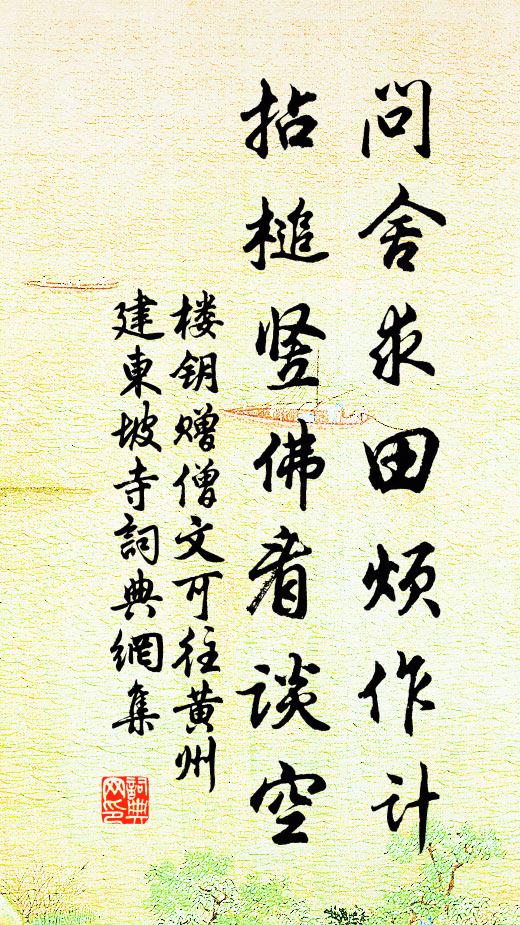 问舍求田烦作计
拈槌竖佛看谈空
楼钥赠僧文可往黄州
建東坡寺詞典網集
詞典网印